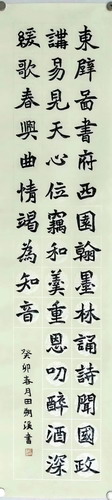 東壁圖書府西園翰墨林誦詩聞國政
講易見天心位竊和羹重恩叨醉酒深
緩歌春興曲情竭為知音
癸卯春月田朝溪書